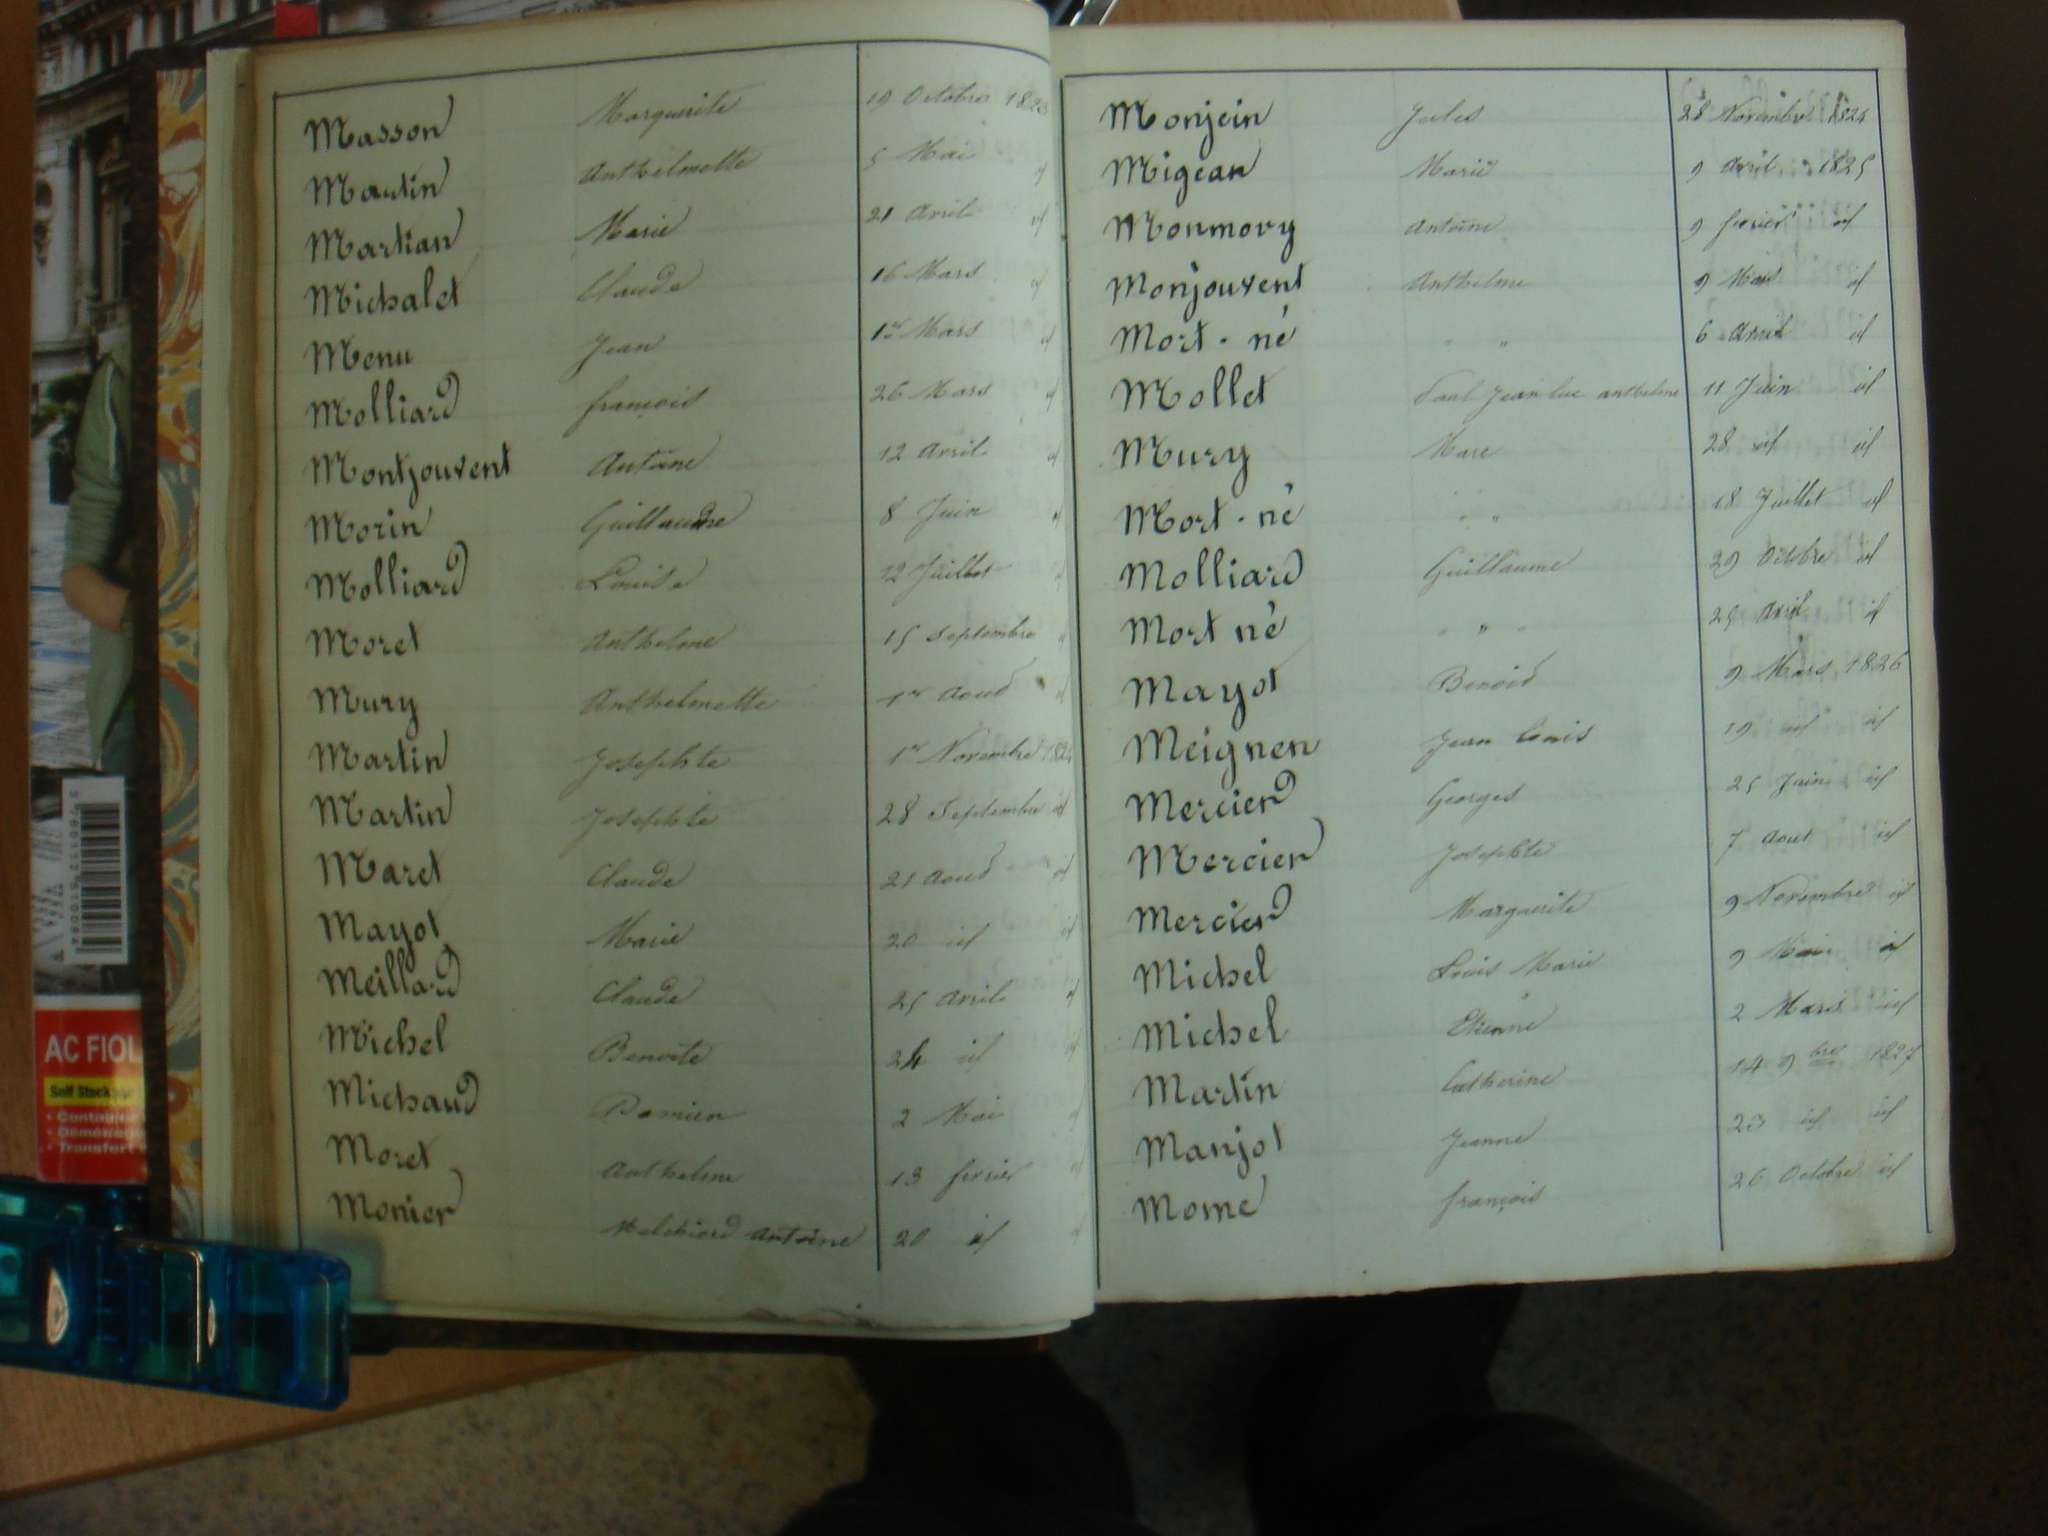 Masson Marguerite 19 Octobre 1823
Martin Anthelmette 5 Mai id
Martian Marie 21 Avril id
Michalet Claude 16 Mars id
Menu Jean 1er Mars id
Molliard françois 26 Mars id
Montjouvent Antoine 12 Avril id
Morin Guillaume 8 Juin id
Molliard Louise 12 Juillet id
Moret Anthelme 15 Septembre id
Mury Anthelmette 1er Aout id
Martin Josephte 1er Novembre 1824
Martin Josephte 28 Septembre id
Maret Claude 21 Aout id
Mayot Marie 20 id id
Meillard Claude 25 Avril id
Michel Benoite 24 id id
Michaud Damien 2 Mai id
Moret Anthelme 13 fevrier id
Monier Melchiord Antoine 20 id id
Monjein Jules 28 Novembre 1824
Migean Marie 9 Avril 1825
Monmory Antoine 9 fevrier id
Monjouvent Anthelme 9 id
Mort-né " 6 Avril id
Mollet Paul Jean luc anthelme 11 Juin id
Mury Marc 28 id id
Mort-né " 18 Juillet id
Molliard Guillaume 29 Octobre id
Mort né " 25 Avril id
Mayot Benoid 9 Mars 1826
Meignen Jean Louis 19 id id
Mercier Georges 25 Juin id
Mercier Josephte 7 Aout id
Mercier Marguerite 9 Novembre id
Michel Louis Marie 9 Mai id
Michel Etienne 2 Mars id
Martin Catherine 14 9bre 1827
Manjot Jeanne 23 id id
Mome françois 26 Octobre id
AC FIOL
Self Stockage
• Déménage
• Transfert